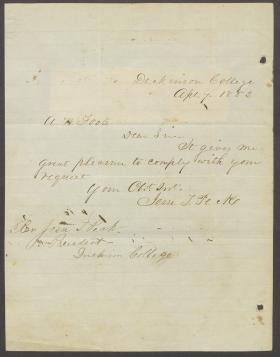 Dickinson College
Apl. 7. 1852
A. H. Foote
Dear Sir
It gives me
great pleasure to comply with your
request
Your Obt. Svt.
Jesse T. Peck
Rev Jesse T Peck
President
Dickinson College